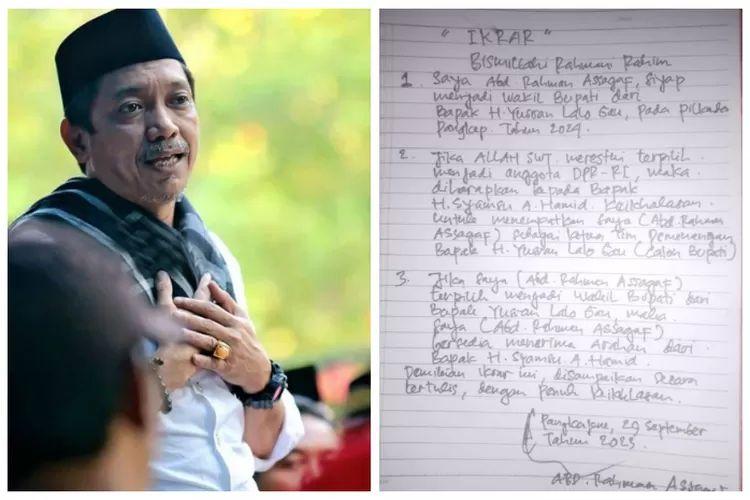 " IKRAR "
Bismillahi Rahmani Rahim
1. Saya Abd Rahman Assagaf, Siyap
menjadi Wakil Bupati dari
Bapak H. Yusran Lalo Gau, pada pilkada
Pangkep Tahun 2024.
2. Jika ALLAH SWT. merestui terpilih
menjadi anggota DPR-RI, maka
diharapkan kepada Bapak
H. Syamsu A. Hamid. Keikhalasan
untuk menempatkan saya (Abd. Rahman
Assagaf) sebagai ketua tim Pemenangan
Bapak H. Yusran Lalo Gau (Calon Bupati)
3. Jika saya (Abd. Rahman Assagaf)
terpilih menjadi Wakil Bupati dari
Bapak Yusran Lalo Gau, maka
saya (Abd. Rahman Assagaf)
bersedia menerima Arahan dari
Bapak H. Syamsu A. Hamid.
Demikian ikrar ini, disampaikan secara
tertulis, dengan penuh keikhlasan.
Pangkajene, 29 September
Tahun 2023.
ABD. Rahman Assagaf